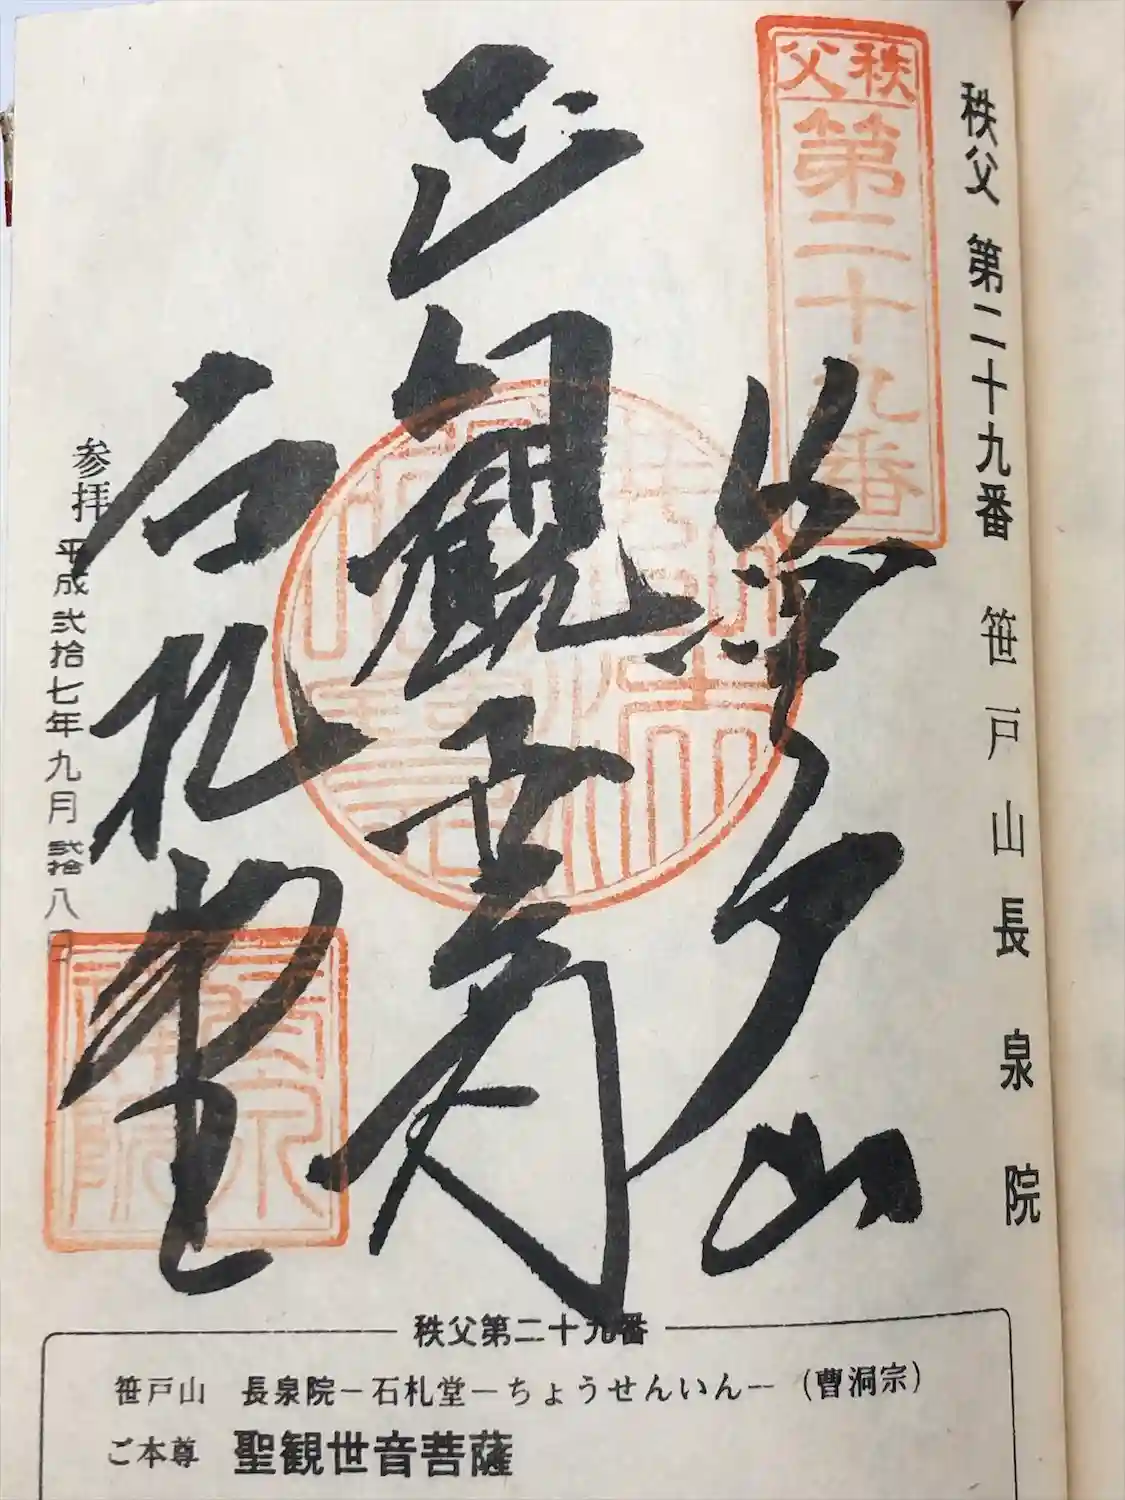 秩父 第二十九番 笹戸山長泉院
秩父
第二十九番
笹戸山
正観世音
石札堂
参拝 平成弐拾七年九月弐拾八
長泉
禅院
秩父第二十九番
笹戸山 長泉院−石札堂−ちょうせんいん−(曹洞宗)
ご本尊 聖観世音菩薩